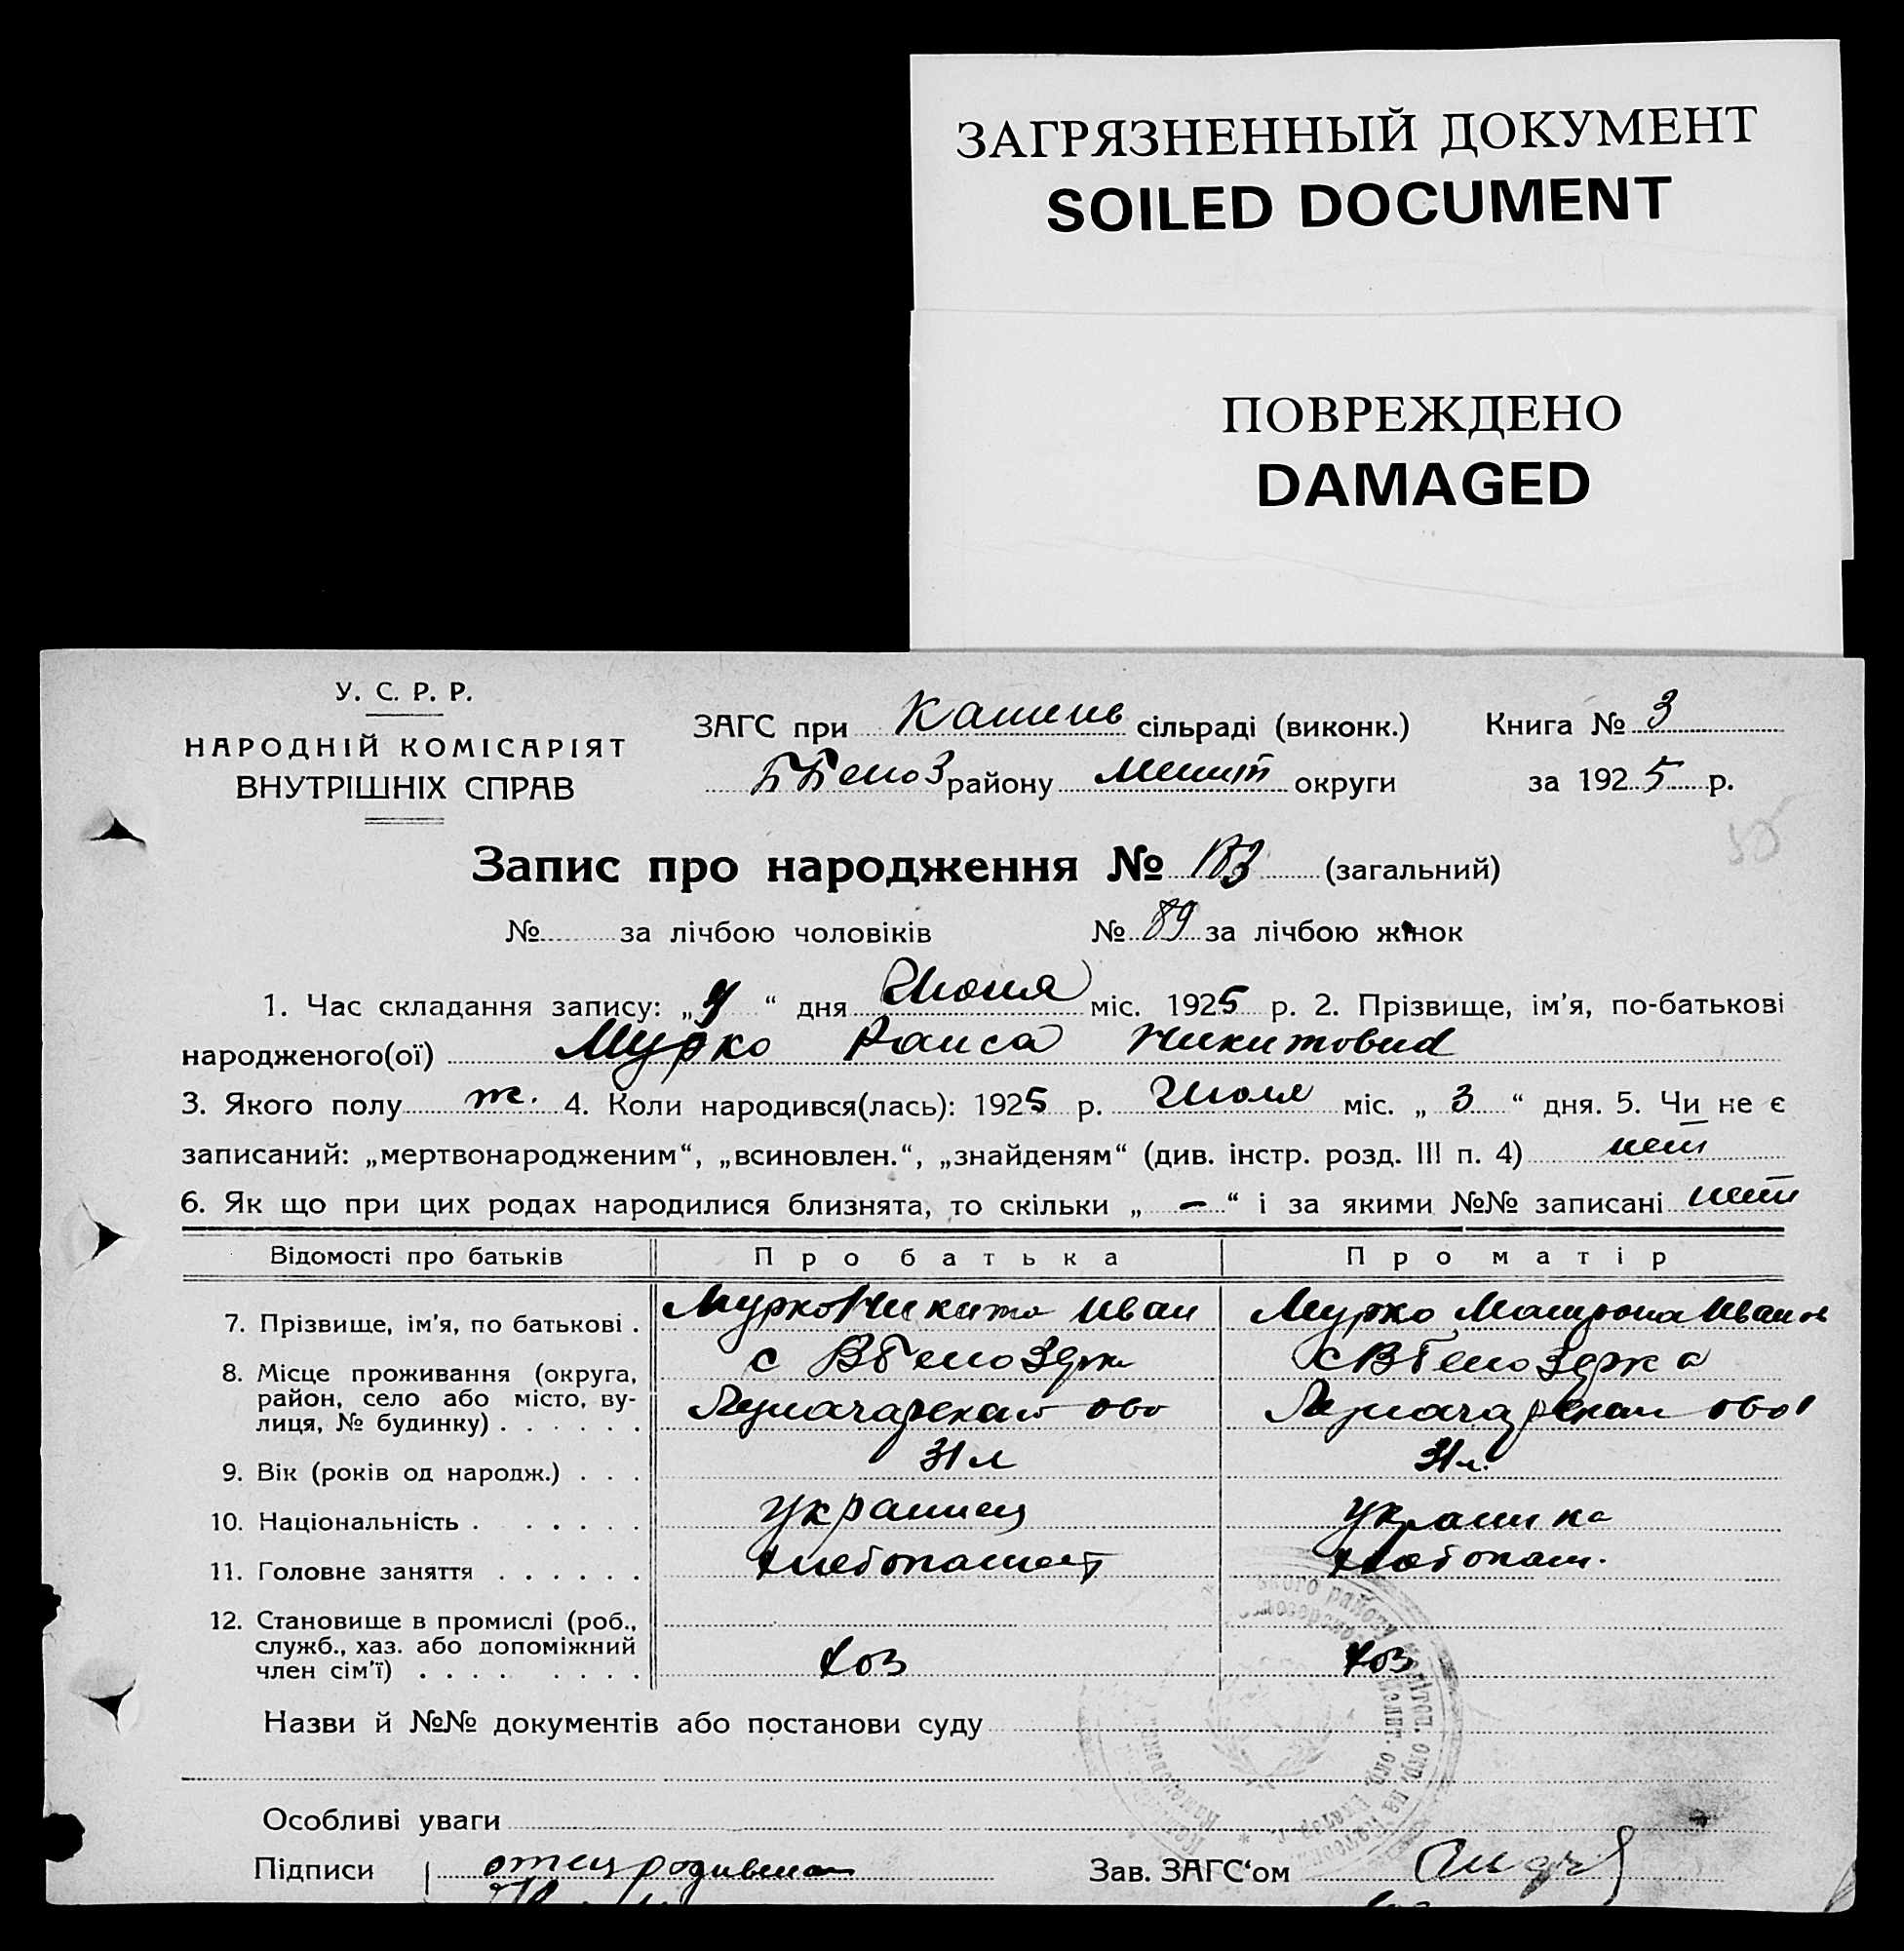 ЗАГРЯЗНЕННЫЙ ДОКУМЕНТ
SOILED DOCUMENT
ПОВРЕЖДЕНО
DAMAGED
У. С. Р. Р.
НАРОДНІЙ КОМІСАРІЯТ
ВНУТРІШНІХ СПРАВ
ЗАГС при Камень сільраді (виконк.) Книга № 3
району Мелит округи за 1925 р.
Запис про народження № 183 (загальний)
№ за лічбою чоловіків № 89 за лічбою жінок
1. Час складання запису: „ “ дня міс. 1925 р. 2. Прізвище, ім'я, по-батькові
народженого(ої) Мурко Раиса Никитовна
3. Якого полу ж. 4. Коли народився(лась): 1925 р. Июля міс. „ 3 “ дня. 5. Чи не є
записаний: „мертвонародженим“, „всиновлен.“, „знайденям“ (див. інстр. розд. III п. 4) нет
6. Як що при цих родах народилися близнята, то скільки „ — “ і за якими №№ записані нет
Відомості про батьків Про батька Про матір
7. Прізвище, ім'я, по батькові . Мурко Никита Иван Мурко Матрона Иванов
8. Місце проживання (округа, с В Белозерка с В Белозерка
район, село або місто, ву-
лиця, № будинку) . . . . . .
9. Вік (років од народж.) . . . 31 л 31 л.
10. Національність . . . . . . украинец украинка
11. Головне заняття . . . . . . хлебопашец хлебопаш.
12. Становище в промислі (роб.,
служб., хаз. або допоміжний
член сім'ї) . . . . . . . . хоз хоз
Назви й №№ документів або постанови суду
Особливі уваги
Підписи отец Зав. ЗАГС‘ом